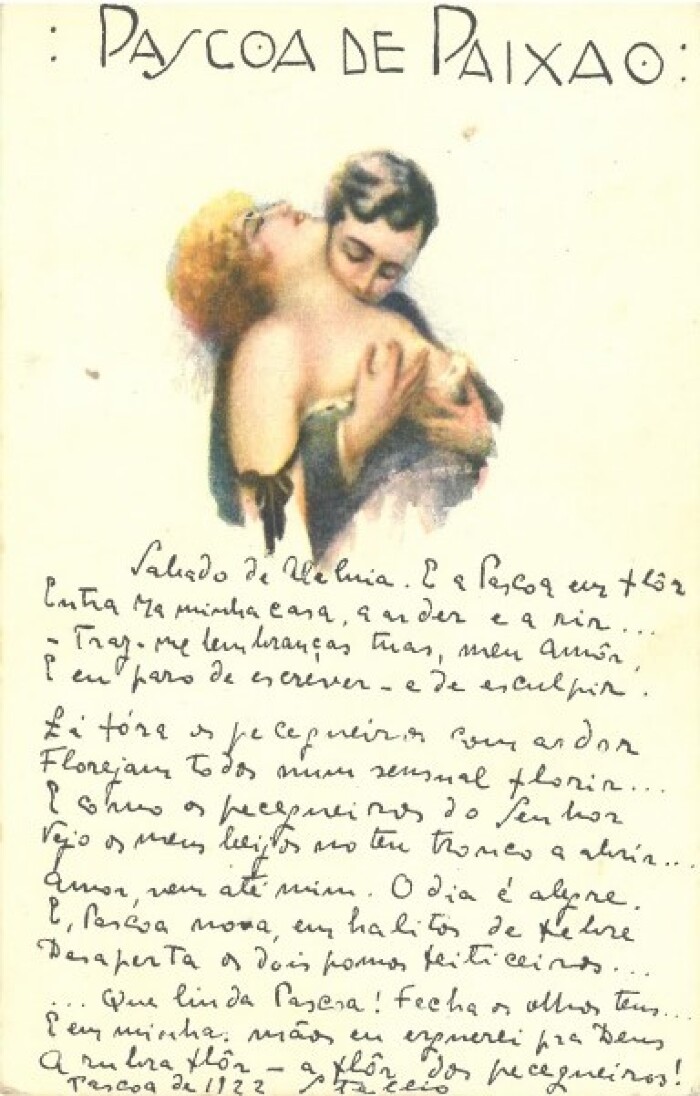 : PASCOA DE PAIXAO :
Sabado de Alleluia. E a Pascoa em flôr
Entra na minha casa, a arder e a rir...
- Traz-me lembranças tuas, meu amôr,
E eu paro de escrever - e de esculpir.
Lá fóra os pecegueiros com ardor
Florejam todos num sensual florir...
E como os pecegueiros do Senhor
Vejo os meus beijos no teu tronco a abrir...
Amor, vem até mim. O dia é alegre.
E, Pascoa nova, em halitos de febre
Desaperta os dois pomos feiticeiros...
... Que linda Pascoa! Fecha os olhos teus...
E em minhas mãos eu erguerei pra Deus
A rubra flôr - a flôr dos pecegueiros!
Pascoa de 1922